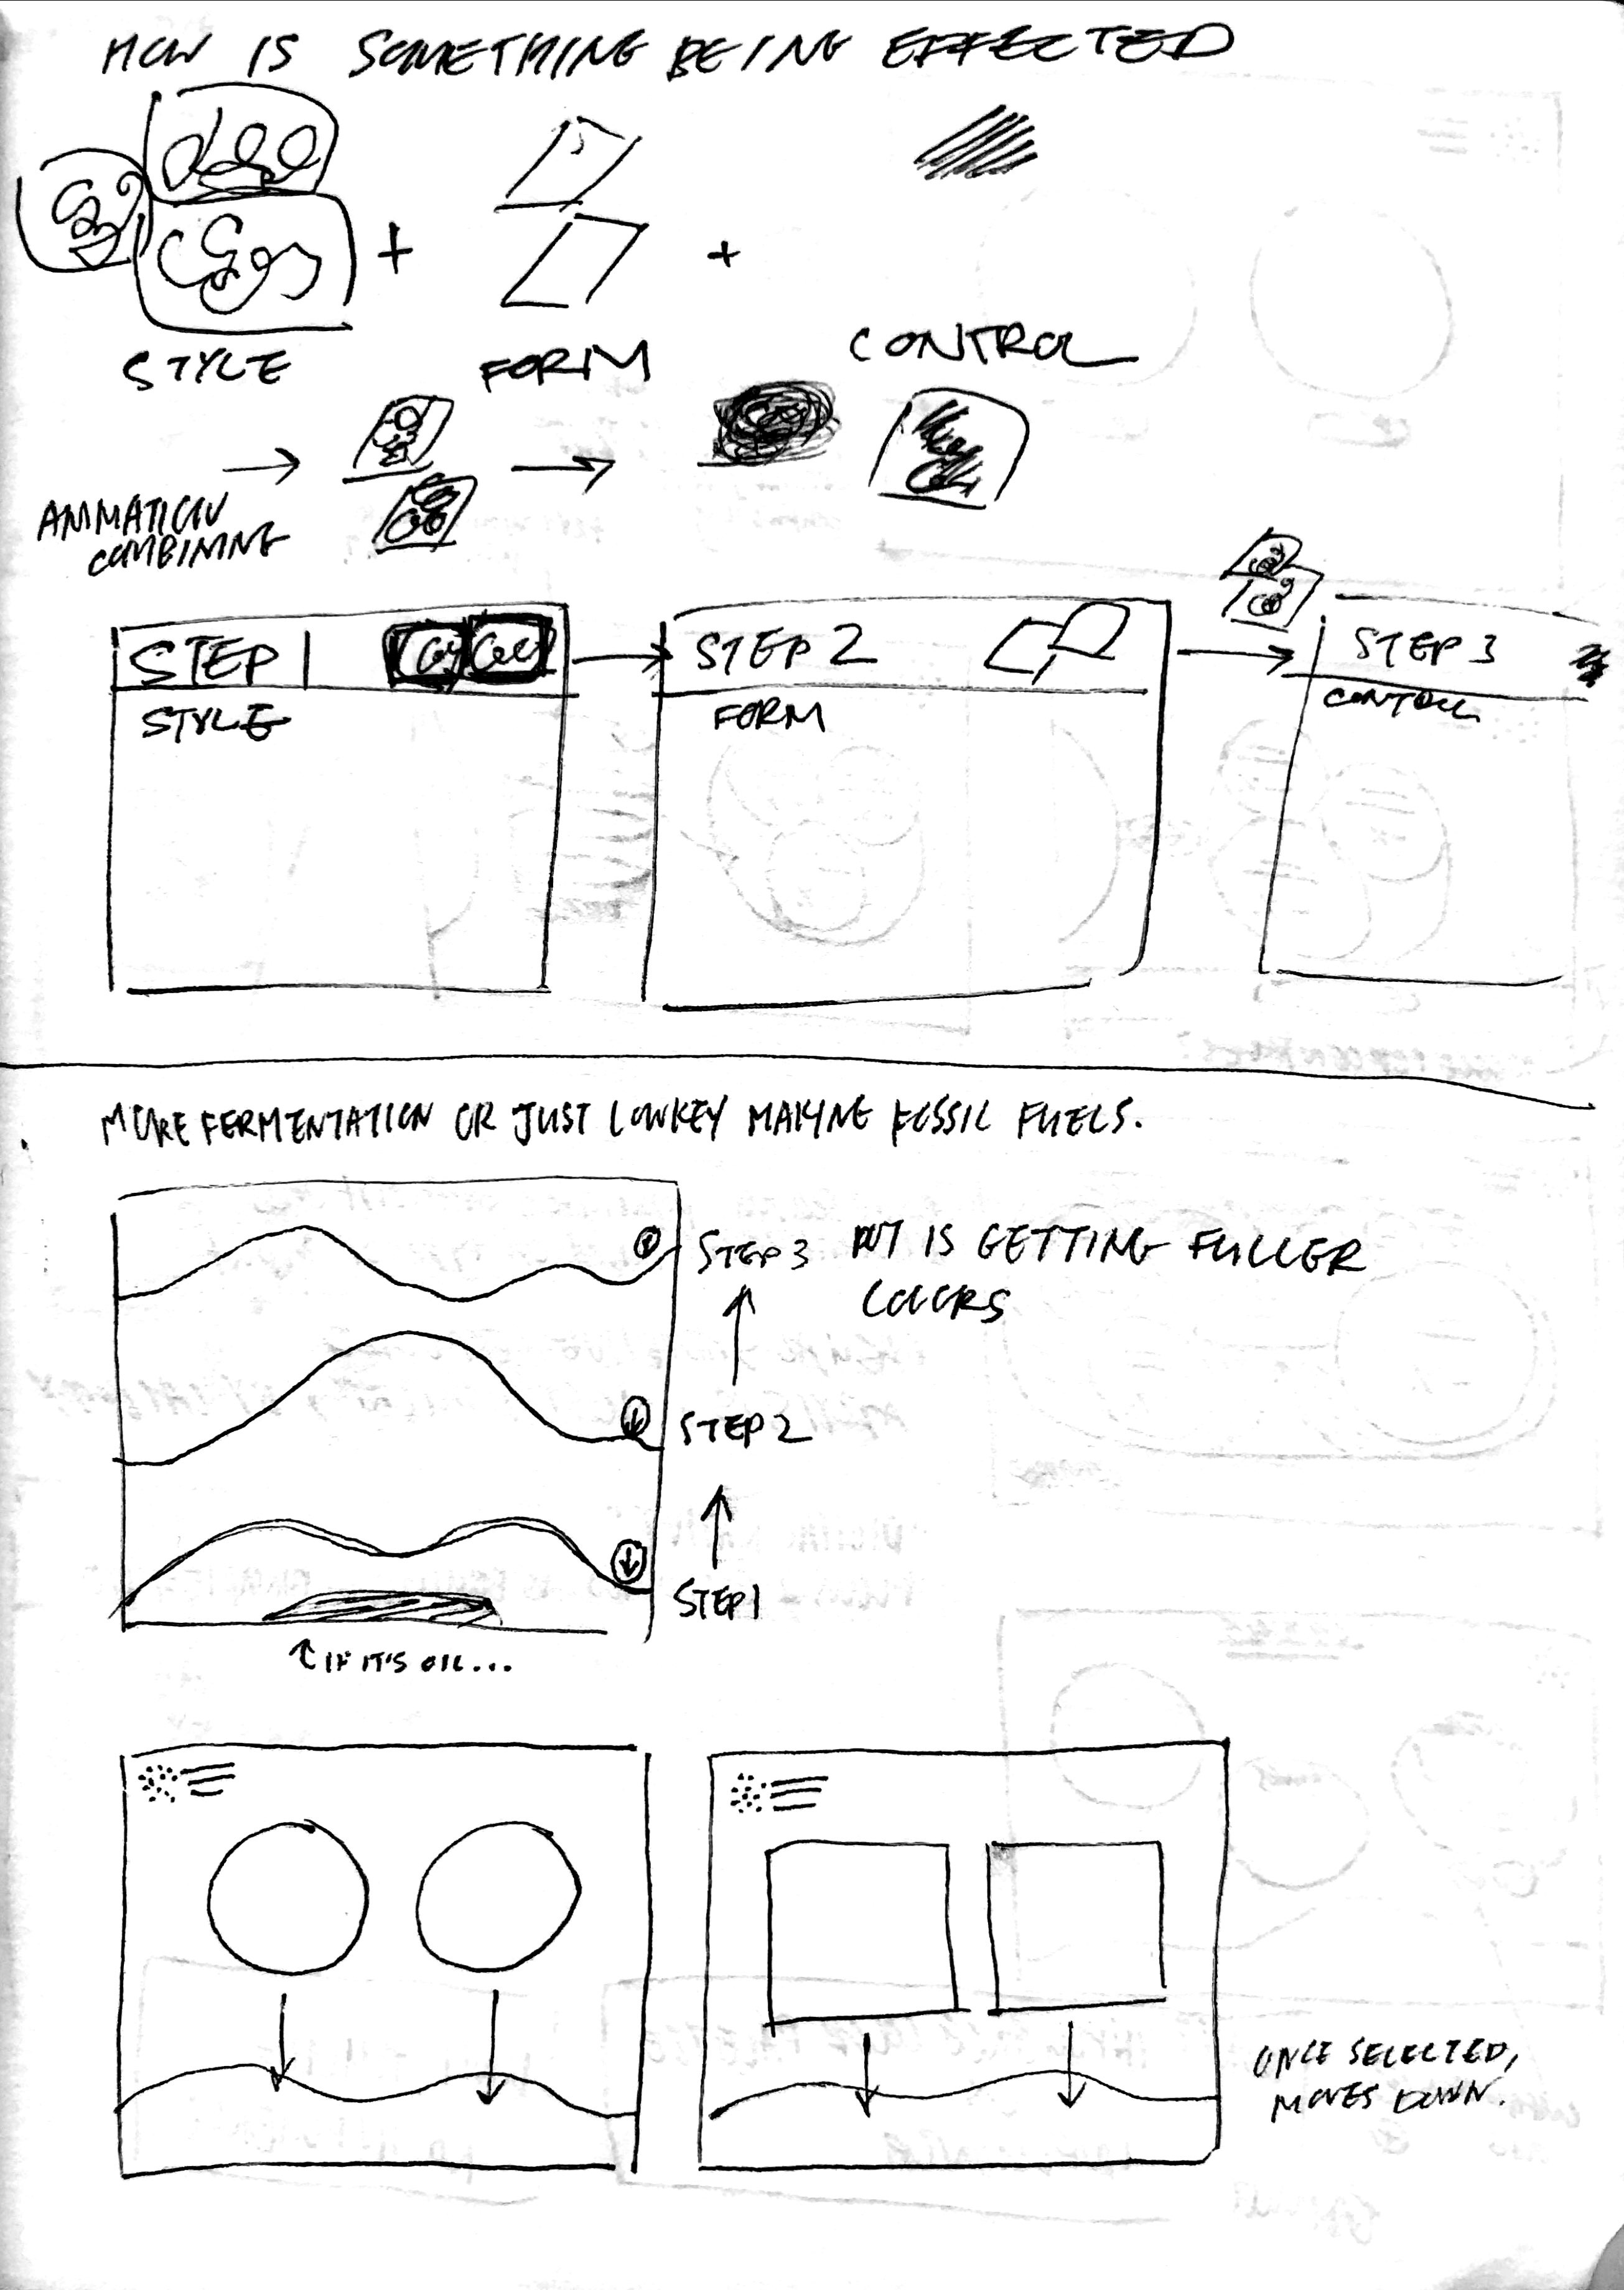 HOW IS SOMETHING BEING EFFECTED
+ +
STYLE FORM CONTROL
ANIMATION
COMBINING
STEP 1
STYLE
STEP 2
FORM
STEP 3
CONTROL
MORE FERMENTATION OR JUST LOWKEY MAKING FOSSIL FUELS.
STEP 3
IS GETTING FULLER
COLORS
STEP 2
STEP 1
IF IT'S OIL...
ONCE SELECTED,
MOVES DOWN.